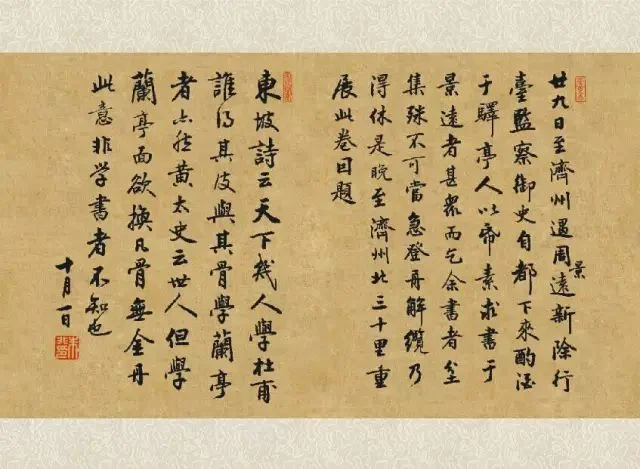 廿九日至濟州遇周景遠新除行
臺監察御史自都下來酌酒
于驛亭人以帋素求書于
景遠者甚衆而乞余書者坌
集殊不可當急登舟解纜乃
得休是晚至濟州北三十里重
展此卷因題
東坡詩云天下幾人學杜甫
誰得其皮與其骨學蘭亭
者亦然黃太史云世人但學
蘭亭面欲換凡骨無金丹
此意非学書者不知也
十月一日